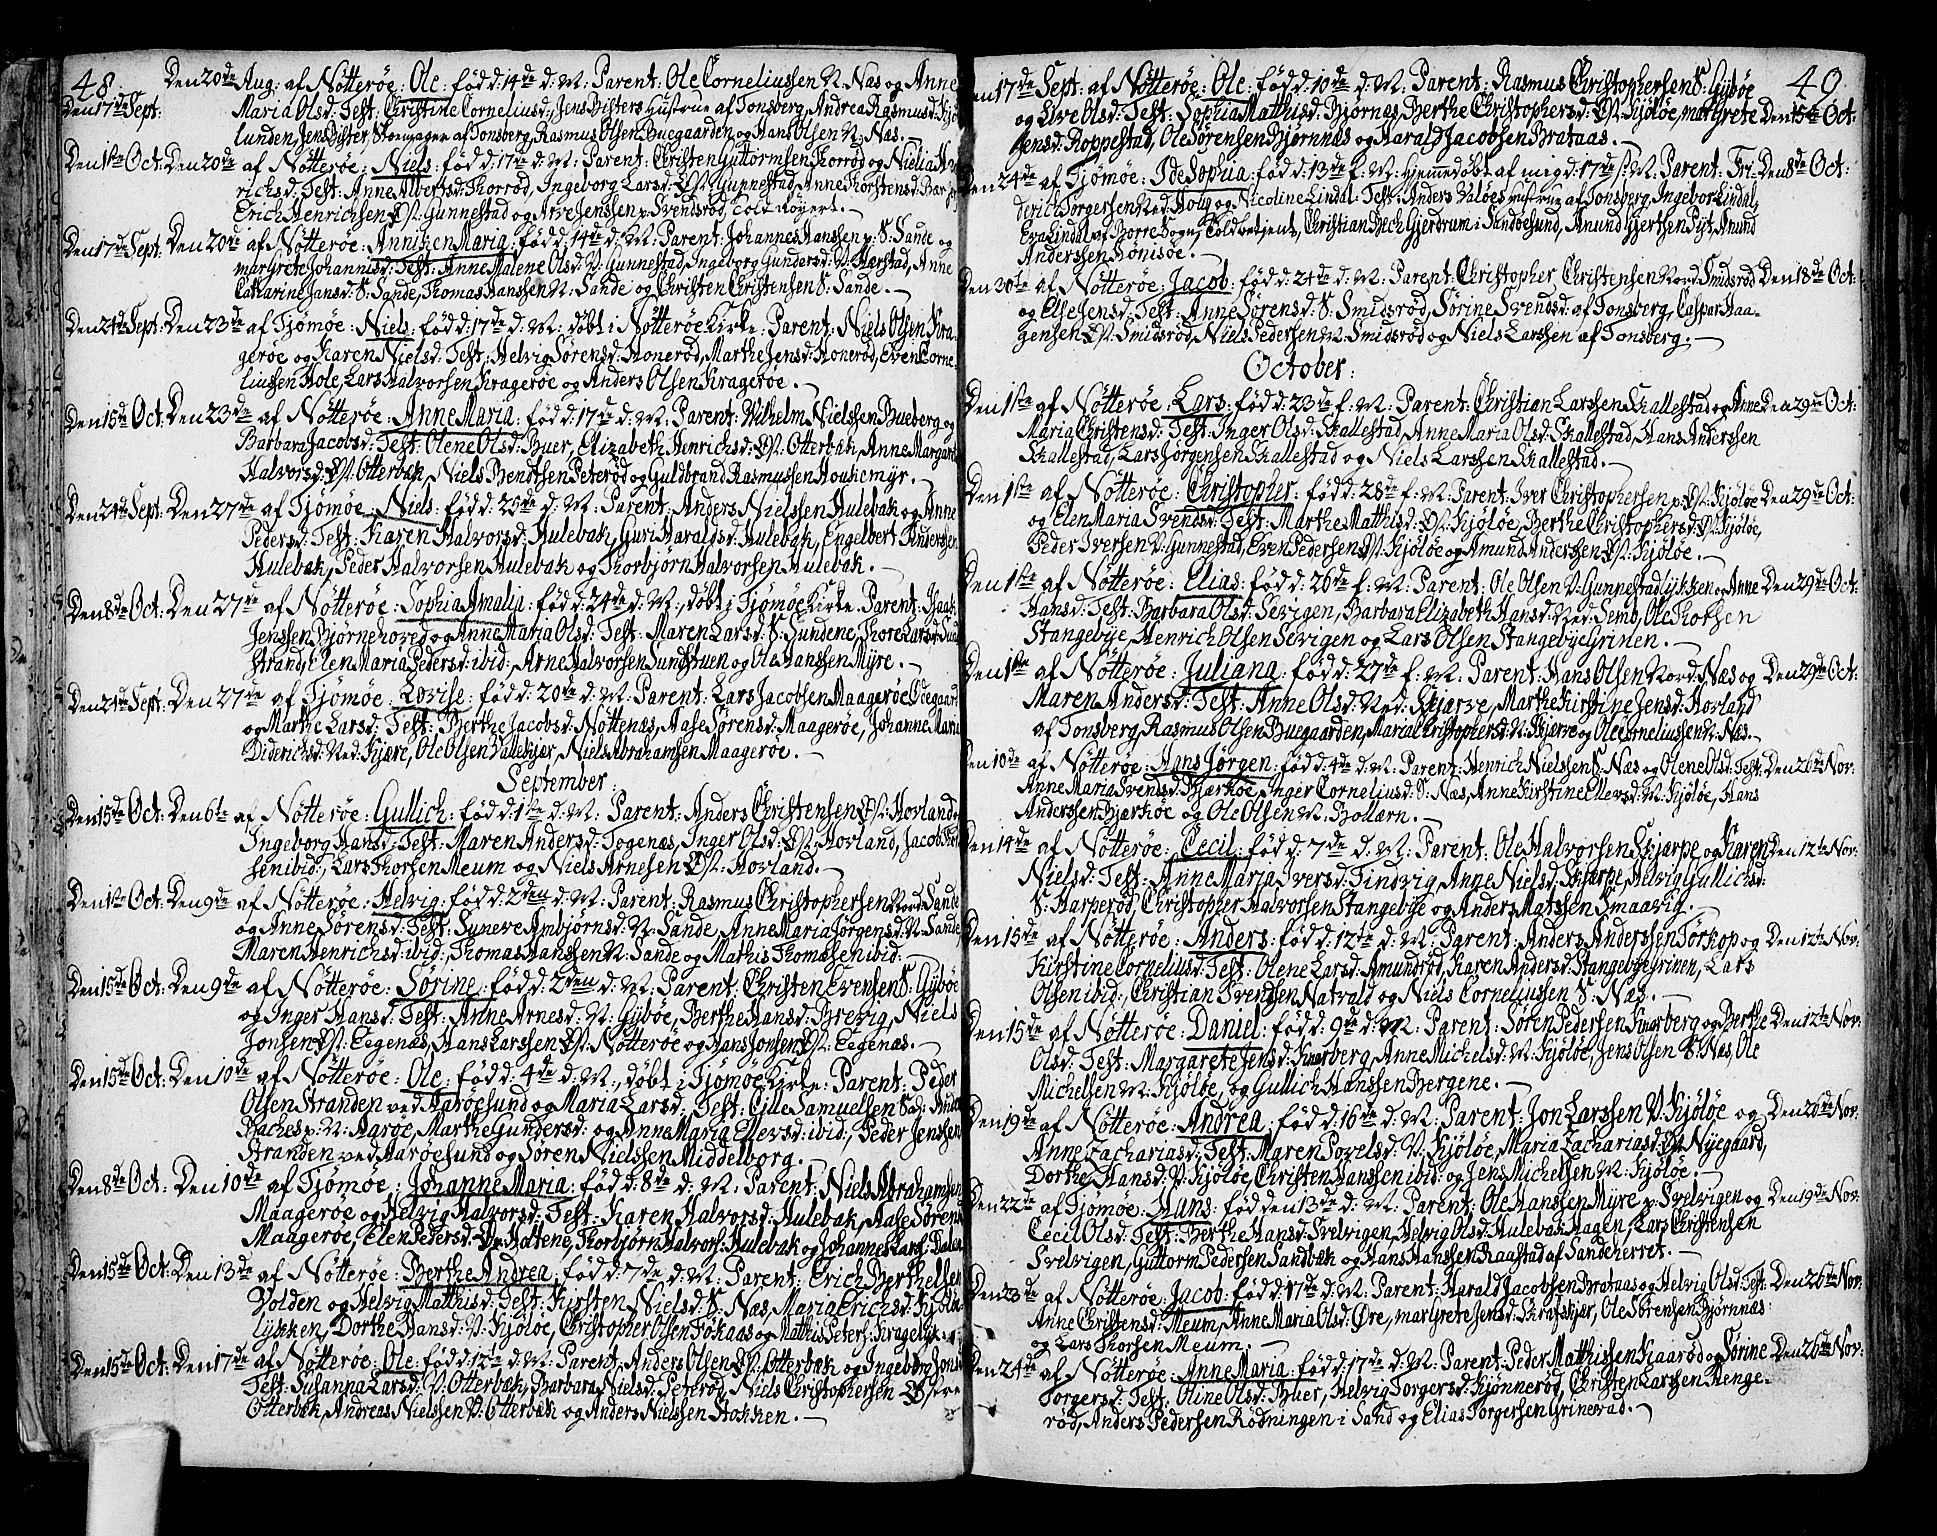 48.
Den 20de Aug: af Nötteröe: Ole: född: 14de d: M: Parent: Ole Corneliussen N: Næs og Anne
Den 17de Sept: Maria Olsd: Test: Christine Corneliusd:, Jens Bisters Hustrue af Tonsberg, Andrea Rasmusd:
lunden, Jens Bister, Steenager af Tonsberg, Rasmus Olsen Buegaarden og Hans Olsen N: Næs.
Den 1ste Oct: Den 20de af Nötteröe: Niels: född: 17de d: M: Parent: Christen Guttormsen Thorröd og Nielia
richsd: Test: Anne Albertsd: Thorröd, Ingeborg Larsd: Øst: Gunnestad, Anne Thorstensd:
Erich Henrichsen Øst: Gunnestad og Arve Jenssen p: Svendsröd, Told Royert.
Den 17de Sept: Den 20de af Nötteröe: Anniken Maria: född: 14de d: M: Parent: Johannes Hanssen p: S: Sande og
margrete Johannisd: Test: Anne Malene Olsd: V: Gunnestad, Ingeborg Gundersd: V: Hærstad, Anne
Catharine Jansd: S: Sande, Thomas Hanssen N: Sande og Christen Christensen S: Sande.
Den 24de Sept: Den 23de af Tjömöe: Niels: född: 17de d: M: döbt i Nötteröe Kirke: Parent: Niels Olsen Kra-
geröe og Karen Nielsd: Test: Helvig Sörensd: Honeröd, Marthe Jensd: Honeröd, Even Corne-
liussen Hole, Lars Halvorsen Krageröe og Anders Olsen Krageröe.
Den 15de Oct: Den 23de af Nötteröe: Anne Maria: född: 17de d: M: Parent: Wilhelm Nielssen Bueberg og
Barbara Jacobsd: Test: Olene Olsd: Buer, Elizabeth Henrichsd: Øst: Otterbak, Anne Margaret
Halvorsd: Øst: Otterbak, Niels Bendtsen Peteröd og Guldbrand Rasmussen Houkemyr.
Den 24de Sept: Den 27de af Tjömöe: Niels: född: 25de d: M: Parent: Anders Nielssen Hulebak og Anne
Pedersd: Test: Karen Halvorsd: Hulebak, Guri Haraldsd: Hulebak, Engelbert Anderssen
Hulebak, Peder Halvorsen Hulebak og Thorbjörn Halvorsen Hulebak.
Den 8de Oct: Den 27de af Nötteröe: Sophia Amalia: född: 24de d: M:, döbt i Tjömöe Kirke: Parent: Isaak
Jenssen Björnehoved og Anne Maria Olsd: Test: Maren Larsd: S: Sundene, Thore Larsd: Sund
strand, Elen Maria Pedersd: ibid:, Arne Halvorsen Sundstuen og Ole Hanssen Myre.
Den 24de Sept: Den 27de af Tjömöe: Lovise: född: 20de d: M: Parent: Lars Jacobsen Maageröe Ödegaard
og Marthe Larsd: Test: Berthe Jacobsd: Nöttenæs, Aase Sörensd: Maageröe, Johanne Maria
Diderichsd: Ned: Kjære, Ole Olsen Vallekjær, Niels Abrahamsen Maageröe.
September:
Den 15de Oct: Den 6te af Nötteröe: Gullich: född: 1ste d: M: Parent: Anders Christensen Øst: Hovland og
Ingeborg Hansd: Test: Maren Andersd: Togenæs, Inger Olsd: Øst: Hovland, Jacob
sen ibid:, Lars Thorsen Meum og Niels Arnesen Øst: Hovland.
Den 1ste Oct: Den 9de af Nötteröe: Helvig: född: 2den d: M: Parent: Rasmus Christophersen Nord: Sande
og Anne Sörensd: Test: Suneve Ambjörnsd: N: Sande, Anne Maria Jörgensd: N: Sande
Maren Henrichsd: ibid:, Thomas Hanssen N: Sande og Mathis Thomæsen ibid:
Den 15de Oct: Den 9de af Nötteröe: Sörine: född: 2den d: M: Parent: Christen Evensen S: Gyböe
og Inger Hansd: Test: Anne Arnesd: N: Gyböe, Berthe Hansd: Brevig, Niels
Jonsen Øst: Eegenæs, Hans Larssen Øst: Nötteröe og Hans Jonsen Øst: Eegenæs.
Den 15de Oct: Den 10de af Nötteröe: Ole: född: 4de d: M:, döbt i Tjömöe Kirke: Parent: Peder
Olsen Stranden ved Aaröesund og Maria Larsd: Test: Cille Samuelsen
Baches p: N: Aaröe, Marthe Gundersd: og Anne Maria Ellevsd: ibid:, Peder Jenssen
Stranden ved Aaröesund og Sören Nielssen Middelborg.
Den 8de Oct: Den 10de af Tjömöe: Johanne Maria: född: 8de d: M: Parent: Niels Abrahamsen
Maageröe og Helvig Halvorsd: Test: Karen Halvorsd: Hulebak, Aase Sörensd
Maageröe, Elen Pedersd: Hatene, Thorbjörn Halvors: Hulebak og Johannes Lars: Dalen
Den 15de Oct: Den 13de af Nötteröe: Berthe Andrea: född: 7de d: M: Parent: Erich Berthelsen
Volden og Helvig Matthisd: Test: Kirsten Nielsd: S: Næs, Maria Erichsd:
lykken, Dorthe Hansd: V: Kjölöe, Christopher Olsen Fökaas og Mathis Peters: Kragelyk.
Den 15de Oct: Den 17de af Nötteröe: Ole: född: 12te d: M: Parent: Anders Olsen Øst: Otterbak og Ingeborg Jonsd
Test: Susanna Larsd: V: Otterbak, Barbara Nielsd: Peteröd, Niels Christophersen Østre
Otterbak, Andreas Nielssen V: Otterbak og Anders Nielssen Stokken.
49.
Den 17de Sept: af Nötteröe: Ole: född: 10de d: M: Parent: Rasmus Christophersen S: Gyböe
og Live Olsd: Test: Sophia Mathisd: Björnes, Berthe Christophersd: Øst: Kjölöe, margrete Den 15de Oct:
Jensd: Roppestad, Ole Sörensen Björnnæs og Harald Jacobsen Brataas.
Den 24de af Tjömöe: Ide Sophia: född: 13de f: M: Hjemmedöbt af mig d: 17de f: M: Parent: Fri- Den 8de Oct:
derich Torgersen Ned: Holg og Nicoline Lindal: Test: Anders Valöes Hustrue af Tonsberg, Ingebor Lindal,
Eva Lindal af Borre Sogn, Toldbetjent, Christian Mich Gjerdrum i Sandöesund, Amund Gjertsen Pist, Amund
Anderssen Bönisöe.
Den 30te af Nötteröe: Jacob: född: 24de d: M: Parent: Christopher Christensen Nord: Smidsröd Den 18de Oct:
og Else Jensd: Test: Anne Sörensd: S: Smidsröd, Sörine Svendsd: af Tonsberg, Caspar Haa-
gensen Øst: Smidsröd, Niels Pedersen N: Smidsröd og Niels Larssen af Tonsberg.
October:
Den 1ste af Nötteröe: Lars: född: 23de f: M: Parent: Christian Larssen Skallestad og Anne Den 29de Oct:
Maria Christensd: Test: Inger Olsd: Skallestad, Anne Maria Olsd: Skallestad, Hans Anderssen
Skallestad, Lars Jörgensen Skallestad og Niels Larssen Skallestad.
Den 1ste af Nötteröe: Christopher: född: 28de f: M: Parent: Iver Christophersen p: Øst: Kjölöe Den 29de Oct:
og Elen Maria Svendsd: Test: Marthe Matthisd: Øst: Kjölöe, Berthe Christophersd: Øst: Kjölöe,
Peder Iversen V: Gunnestad, Even Pedersen Øst: Kjölöe og Amund Anderssen Øst: Kjölöe.
Den 1ste af Nötteröe: Elias: född: 26de f: M: Parent: Ole Olsen V: Gunnestadlykken og Anne Den 29de Oct:
Hansd: Test: Barbara Olsd: Sevigen, Barbara Elizabeth Hansd: Ned: Semb, Ole Thorsen
Stangebye, Henrich Olsen Sevigen og Lars Olsen Stangebye Grinen.
Den 1ste af Nötteröe: Juliana: född: 27de f: M: Parent: Hans Olsen Nord: Næs og Den 29de Oct:
Maren Andersd: Test: Anne Olsd: Ned: Skjærve, Marthe Kirstine Jensd: Hovland
af Tonsberg, Rasmus Olsen Buegaarden, Maria Christophersd: N: Skjærve og Ole Corneliussen N: Næs.
Den 10de af Nötteröe: Hans Jörgen: född: 4de d: M: Parent: Henrich Nielssen S: Næs og Olene Olsd: Test: Den 26de Nov:
Anne Maria Svendsd: Bjærköe, Inger Corneliusd: S: Næs, Anne Kirstine Ellevsd: V: Kjölöe, Hans
Anderssen Bjærköe og Ole Olsen N: Bollærn.
Den 14de af Nötteröe: Cecil: född: 7de d: M: Parent: Ole Halvorsen Skjerpe og Karen Den 12te Nov:
Nielsd: Test: Anne Maria Iversd: Tindvig, Anne Nielsd: Skjerpe, Helvig Gullichsd:
S: Harperöd, Christopher Halvorsen Stangebye og Anders Matssen Smaavig.
Den 15de af Nötteröe: Anders: född: 12te d: M: Parent: Anders Anderssen Torkop og Den 12te Nov:
Kirstine Corneliusd: Test: Olene Larsd: Amundröd, Karen Andersd: Stangebye Grinen, Lars
Olsen ibid:, Christian Svendsen Natvald og Niels Corneliussen S: Næs.
Den 15de af Nötteröe: Daniel: född: 9de d: M: Parent: Sören Pedersen Kvarberg og Berthe Den 12te Nov:
Olsd: Test: Margarete Jensd: Kvarberg, Anne Michelsd: N: Kjölöe, Jens Olsen S: Næs, Ole
Michelsen N: Kjölöe, og Gullich Hanssen Bergene.
Den 19de af Nötteröe: Andrea: född: 16de d: M: Parent: Jon Larssen V: Kjölöe og Den 26de Nov:
Anne Zachariasd: Test: Maren Povelsd: V: Kjölöe, Maria Zachariasd: Øst: Nyegaard,
Dorthe Hansd: V: Kjölöe, Christen Hanssen ibid: og Jens Michelsen N: Kjölöe.
Den 22de af Tjömöe: Hans: född den 13de d: M: Parent: Ole Hanssen Myre p: Svelvigen og Den 19de Nov:
Cecil Olsd: Test: Berthe Hansd: Svelvigen, Helvig Olsd: Hulebak Hagen, Lars Christensen
Svelvigen, Guttorm Pedersen Sandbæk og Hans Hanssen Raastad af Sandeherret.
Den 23de af Nötteröe: Jacob: född: 17de d: M: Parent: Harald Jacobsen Brataas og Helvig Olsd: Test: Den 26de Nov:
Anne Christensd: Meum, Anne Maria Olsd: Øre, margrete Jensd: Skrafskjær, Ole Sörensen Björnnæs
og Lars Thorsen Meum.
Den 24de af Nötteröe: Anne Maria: född: 17de d: M: Parent: Peder Matthissen Kaaröd og Sörine Den 26de Nov:
Torgersd: Test: Oline Olsd: Buer, Helvig Torgersd: Kjönneröd, Christen Larssen Henge-
röd, Anders Pedersen Rödningen i Sand og Elias Torgersen Grinerad.